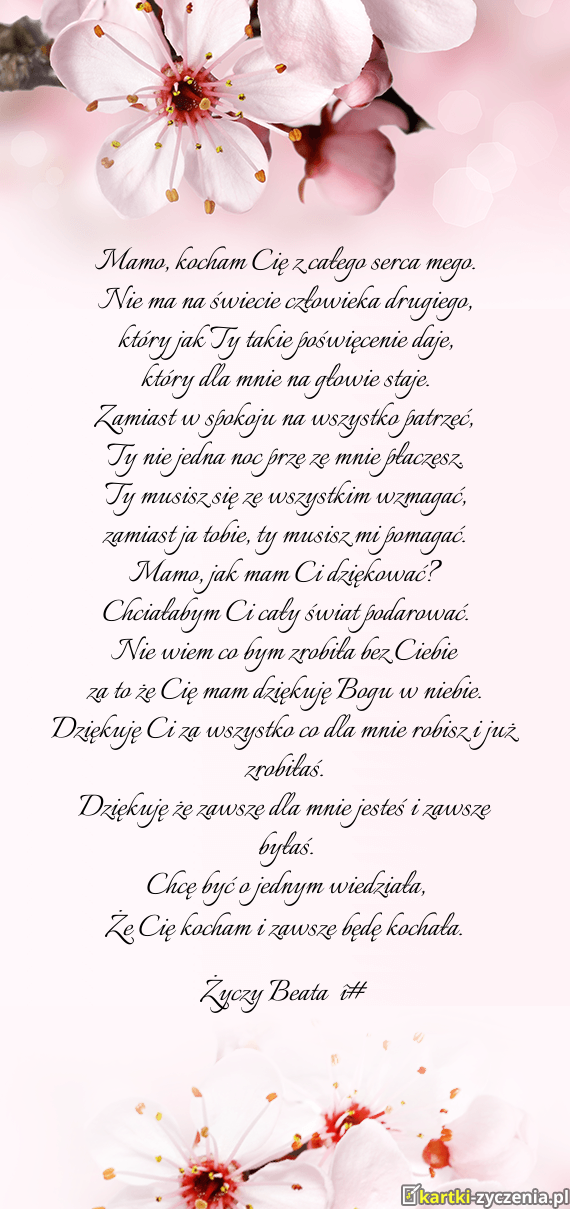 Mamo, kocham Cię z całego serca mego.
Nie ma na świecie człowieka drugiego,
który jak Ty takie poświęcenie daje,
który dla mnie na głowie staje.
Zamiast w spokoju na wszystko patrzeć,
Ty nie jedna noc prze ze mnie płaczesz.
Ty musisz się ze wszystkim wzmagać,
zamiast ja tobie, ty musisz mi pomagać.
Mamo, jak mam Ci dziękować?
Chciałabym Ci cały świat podarować.
Nie wiem co bym zrobiła bez Ciebie
za to że Cię mam dziękuję Bogu w niebie.
Dziękuję Ci za wszystko co dla mnie robisz i już
zrobiłaś.
Dziękuję że zawsze dla mnie jesteś i zawsze
byłaś.
Chcę być o jednym wiedziała,
Że Cię kocham i zawsze będę kochała.
Życzy Beata î#
kartki-zyczenia.pl